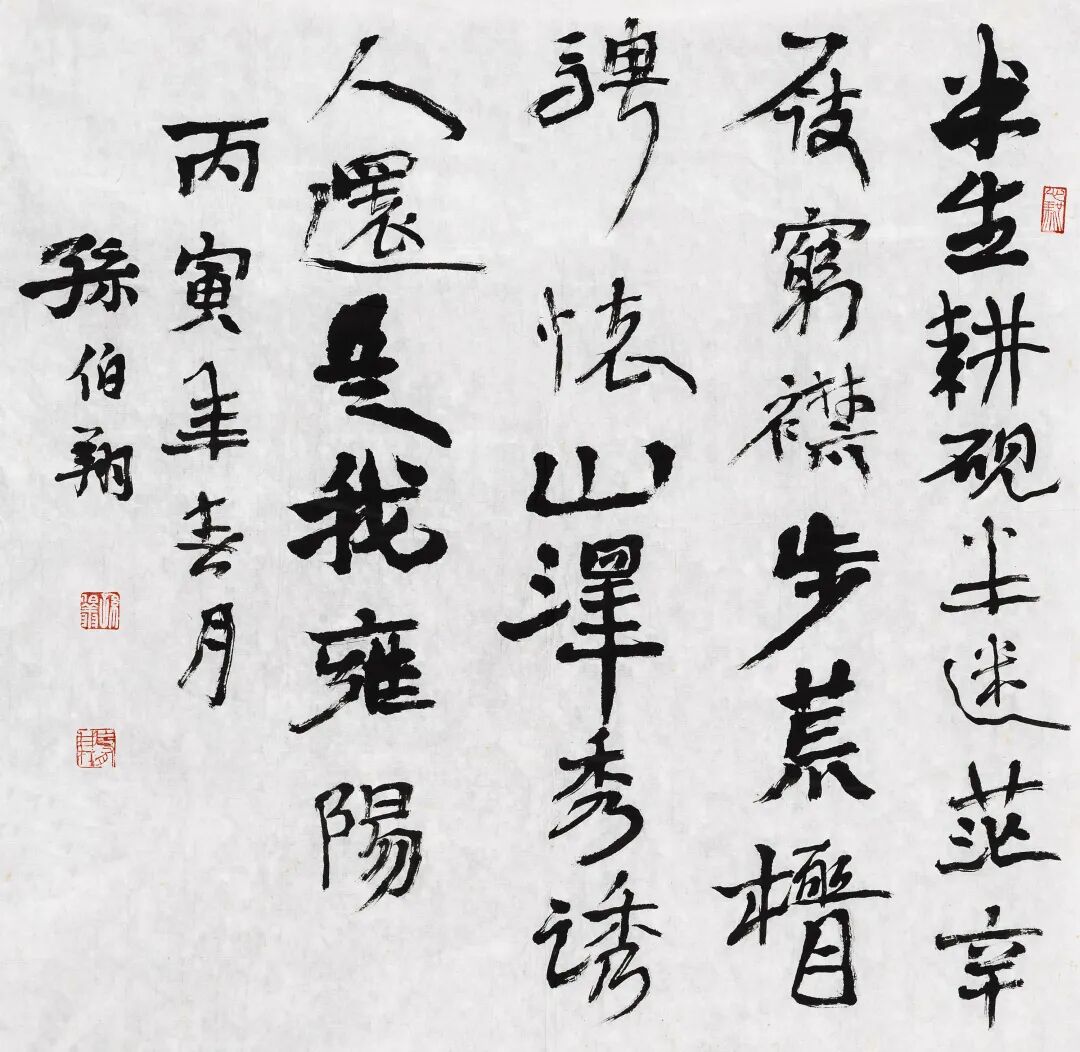 半生耕硯半迷茫辛
發窮襟步荒
騁懷山澤秀誘
人還是我雍陽
丙寅年春月
孫伯翔